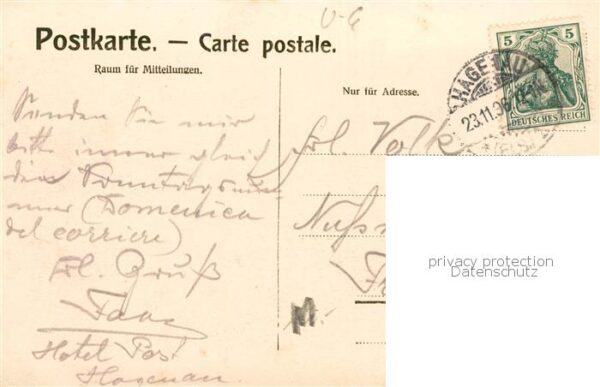 U-6
Postkarte. — Carte postale.
Raum für Mitteilungen.
Nur für Adresse.
5 5
DEUTSCHES REICH
HAGENAU
23.11.06
Senden Sie mir
bitte immer gleich
die Sonntagsnum-
mer (Domenica
del corriere)
Frl. Volk
Nuß
F
Frl. Gruß
Hotel Post
Hagenau.
M.
privacy protection
Datenschutz